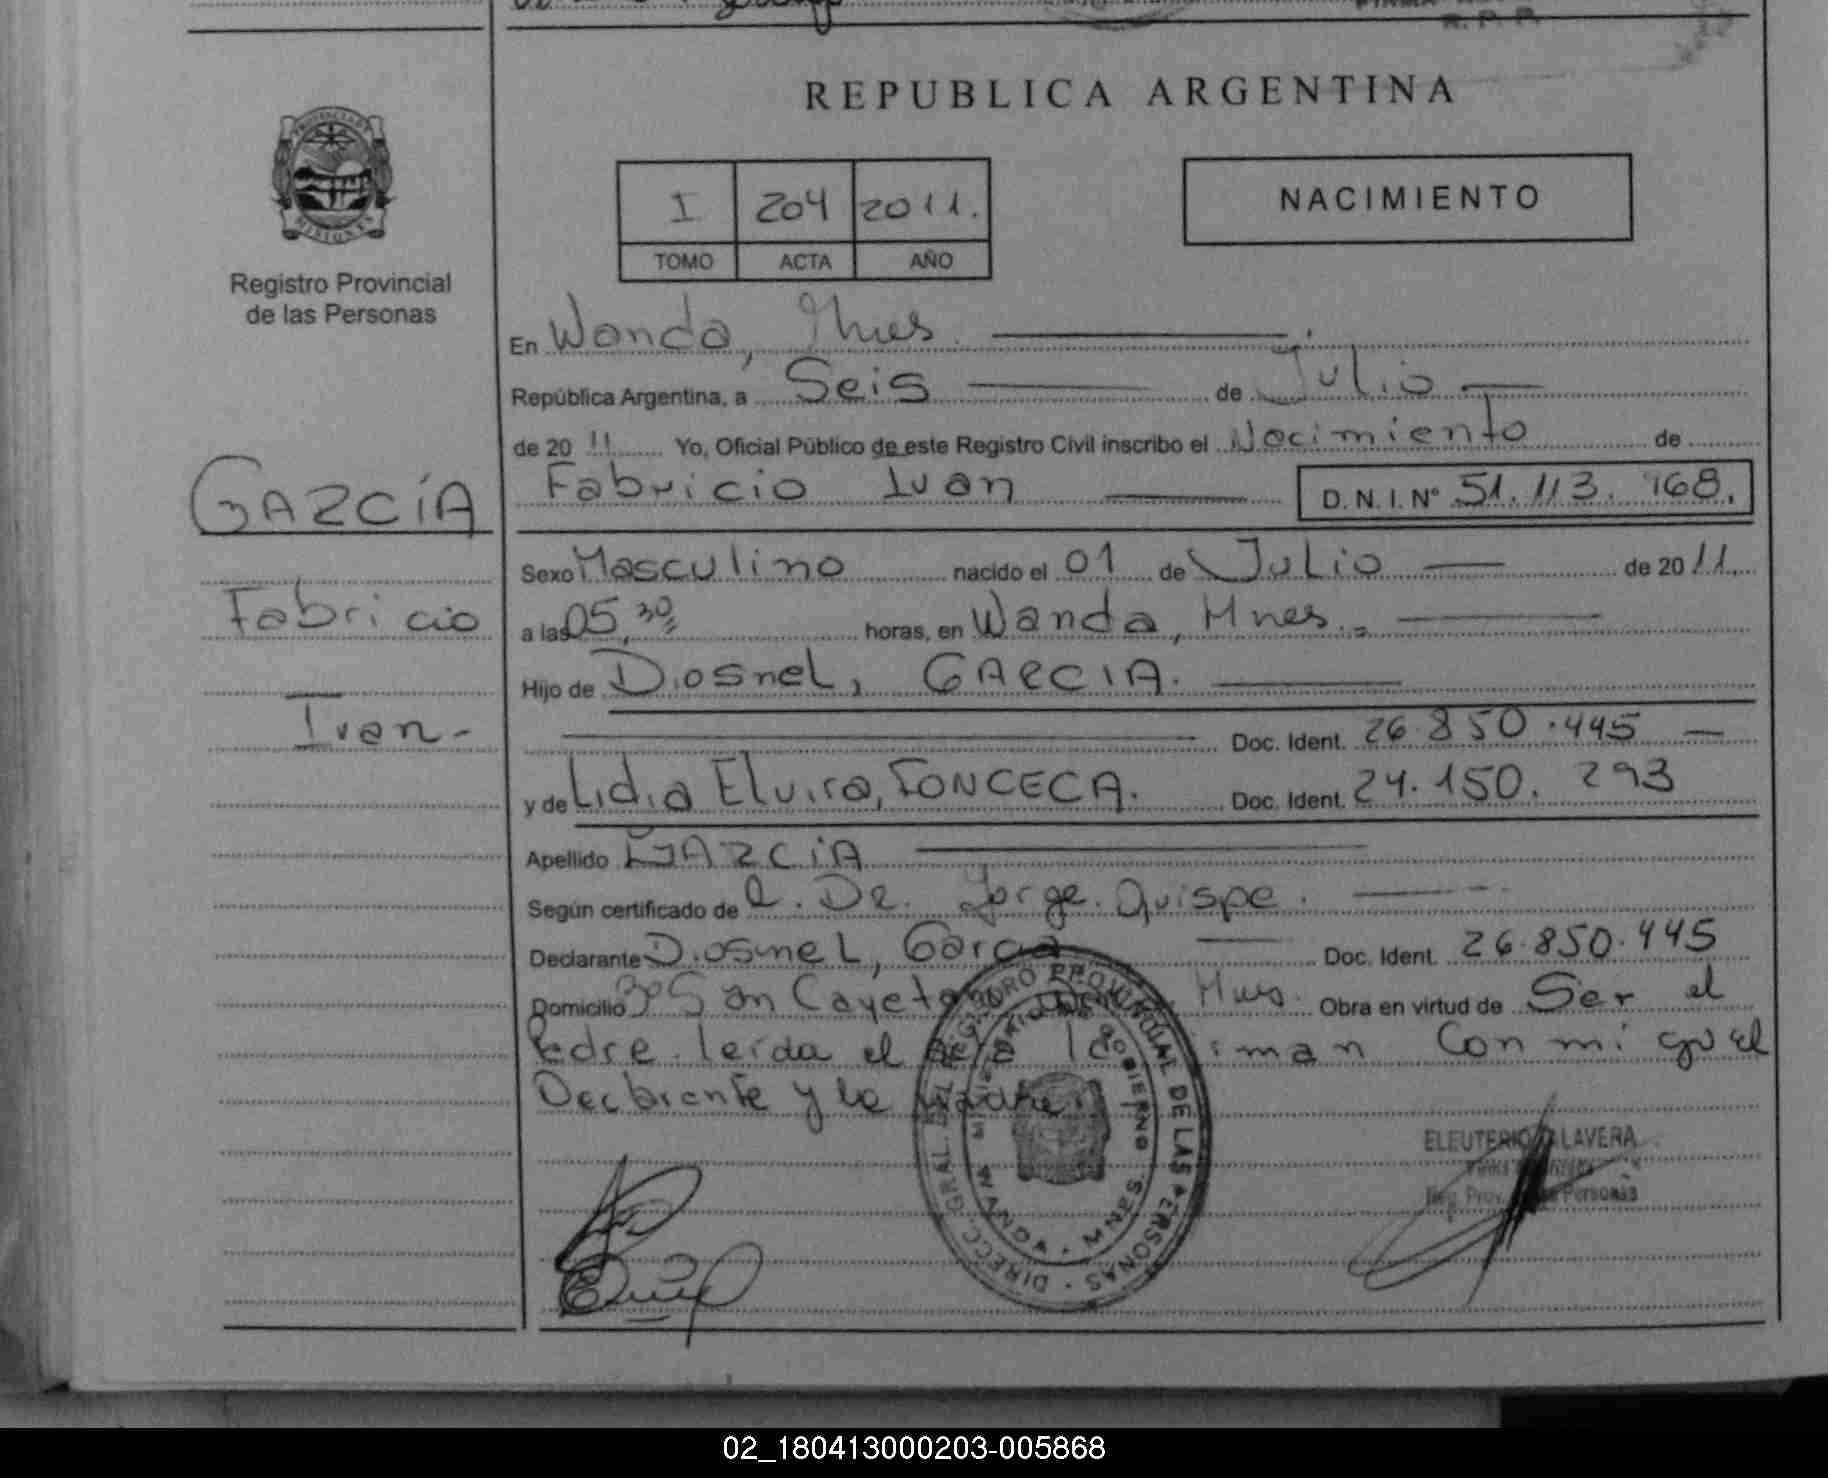 REPUBLICA ARGENTINA
PROVINCIA DE MISIONES
Registro Provincial
de las Personas
I 204 2011.
TOMO ACTA AÑO
NACIMIENTO
En Wanda, Mnes.
República Argentina, a Seis de Julio
de 20 11 Yo, Oficial Público de este Registro Civil inscribo el Nacimiento de
Fabricio Ivan D.N.I.Nº 51.113.168.
GARCÍA
Fabricio
Ivan-
Sexo Masculino nacido el 01 de Julio de 2011
a las 05,30 horas, en Wanda, Mnes.
Hijo de Diosnel, GARCIA.
Doc. Ident. 26.850.445
y de Lidia Elvira, FONCECA. Doc. Ident. 24.150.293
Apellido GARCIA
Según certificado de Dr. Jorge Quispe.
Declarante Diosnel, Garcia Doc. Ident. 26.850.445
Domicilio San Cayetano Mnes. Obra en virtud de Ser el
Padre. leída el Acta la firman Conmigo el
Declarante y la Madre.
DIRECC. GRAL. DEL REGISTRO PROVINCIAL DE LAS PERSONAS
MINISTERIO DE GOBIERNO
WANDA MNES
ELEUTERIO TALAVERA
Reg. Prov. Personas
02_180413000203-005868